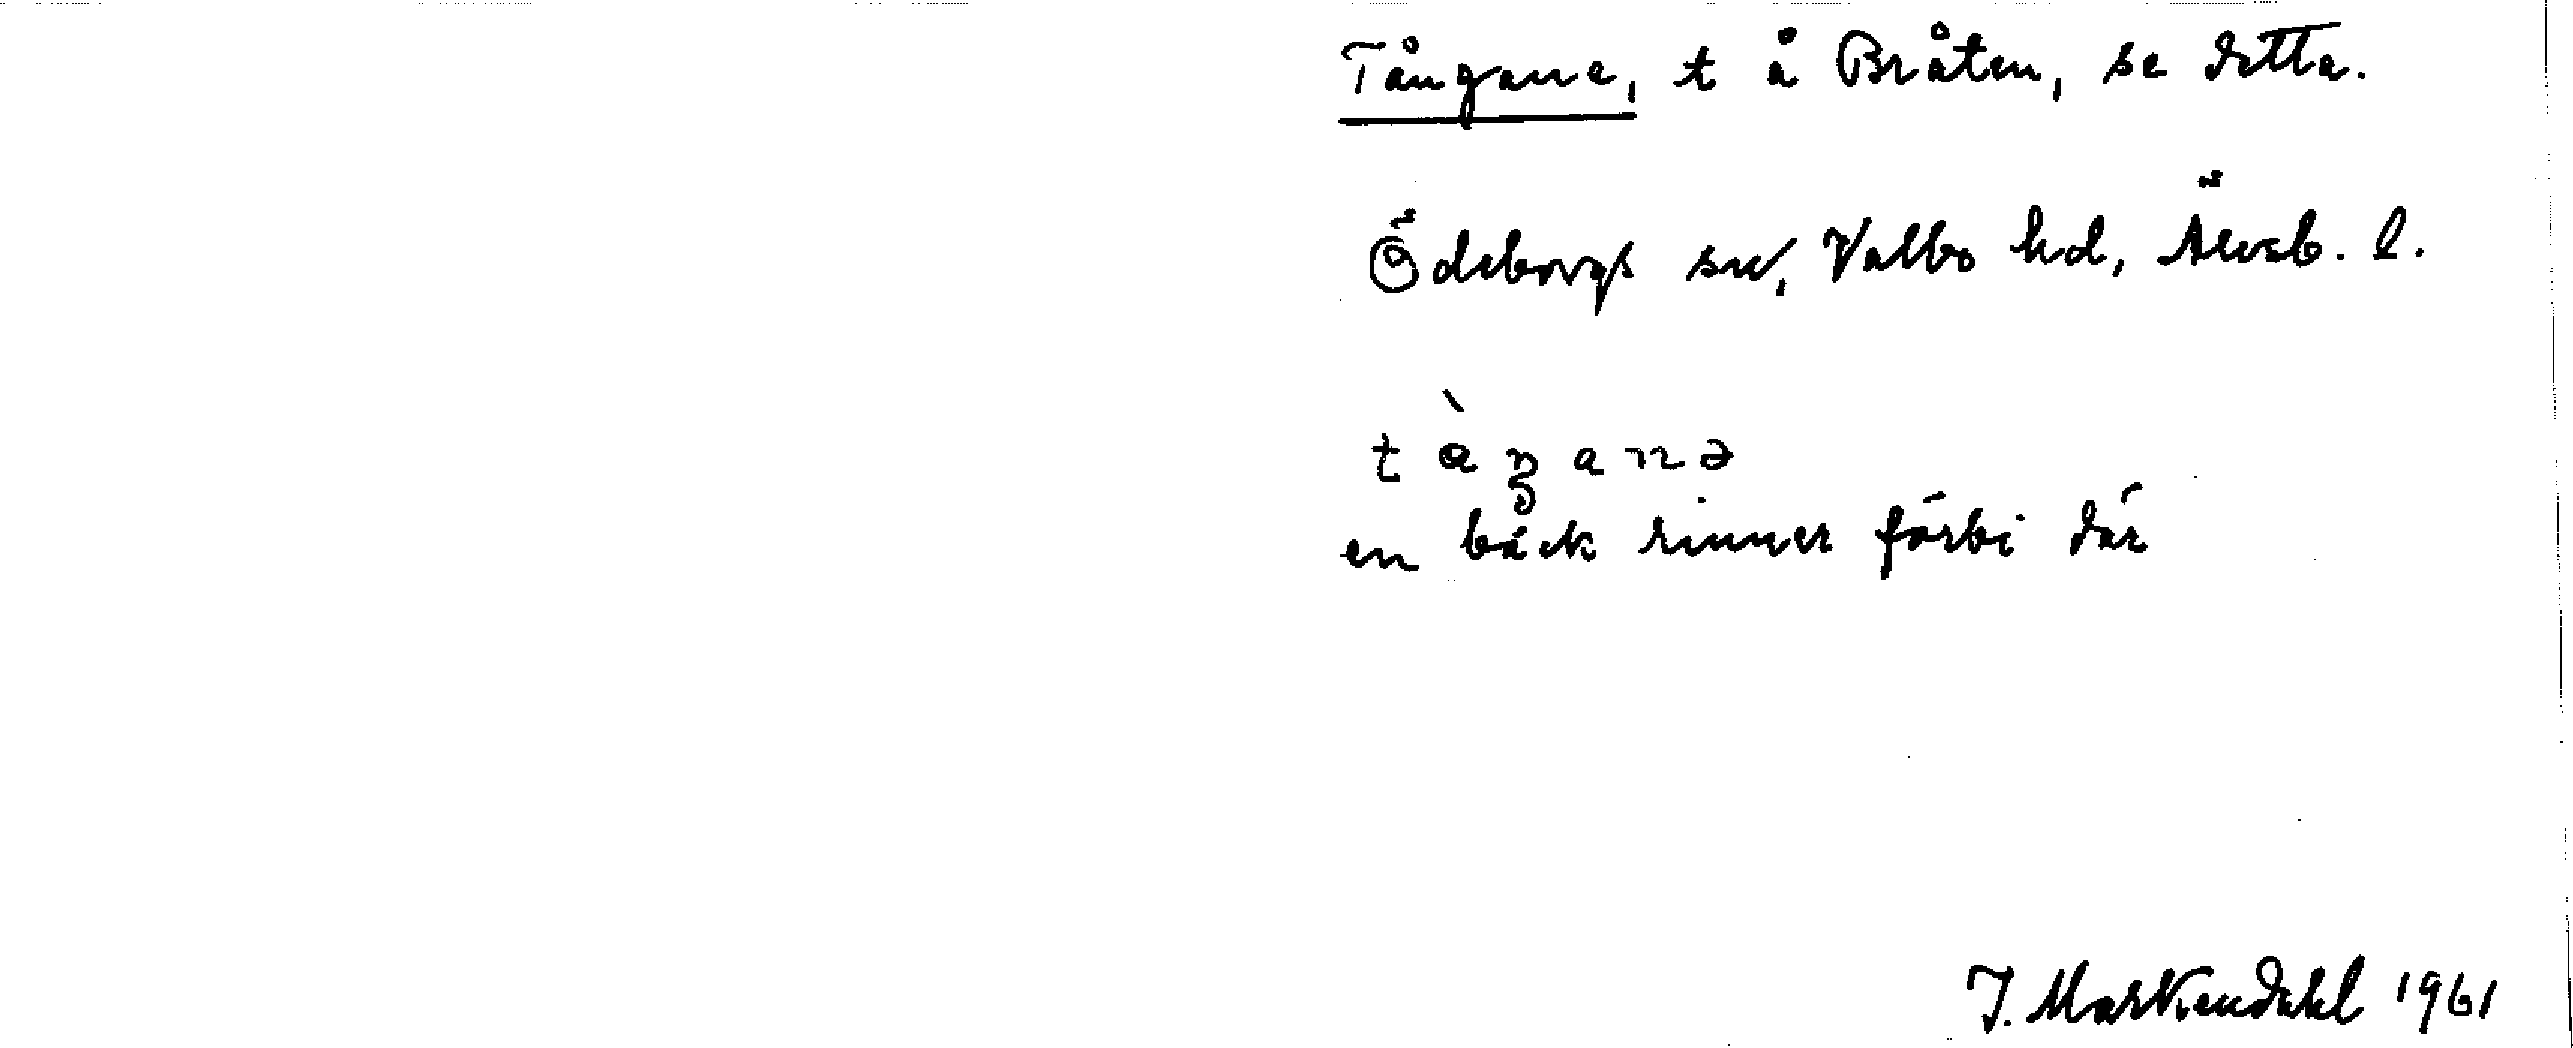 Tångane, t å Bråten, se detta.
Ödeborgs sn, Valbo hd, Älvsb. l.
tàŋanə
en bäck rinner förbi där
J. Markendahl 1961